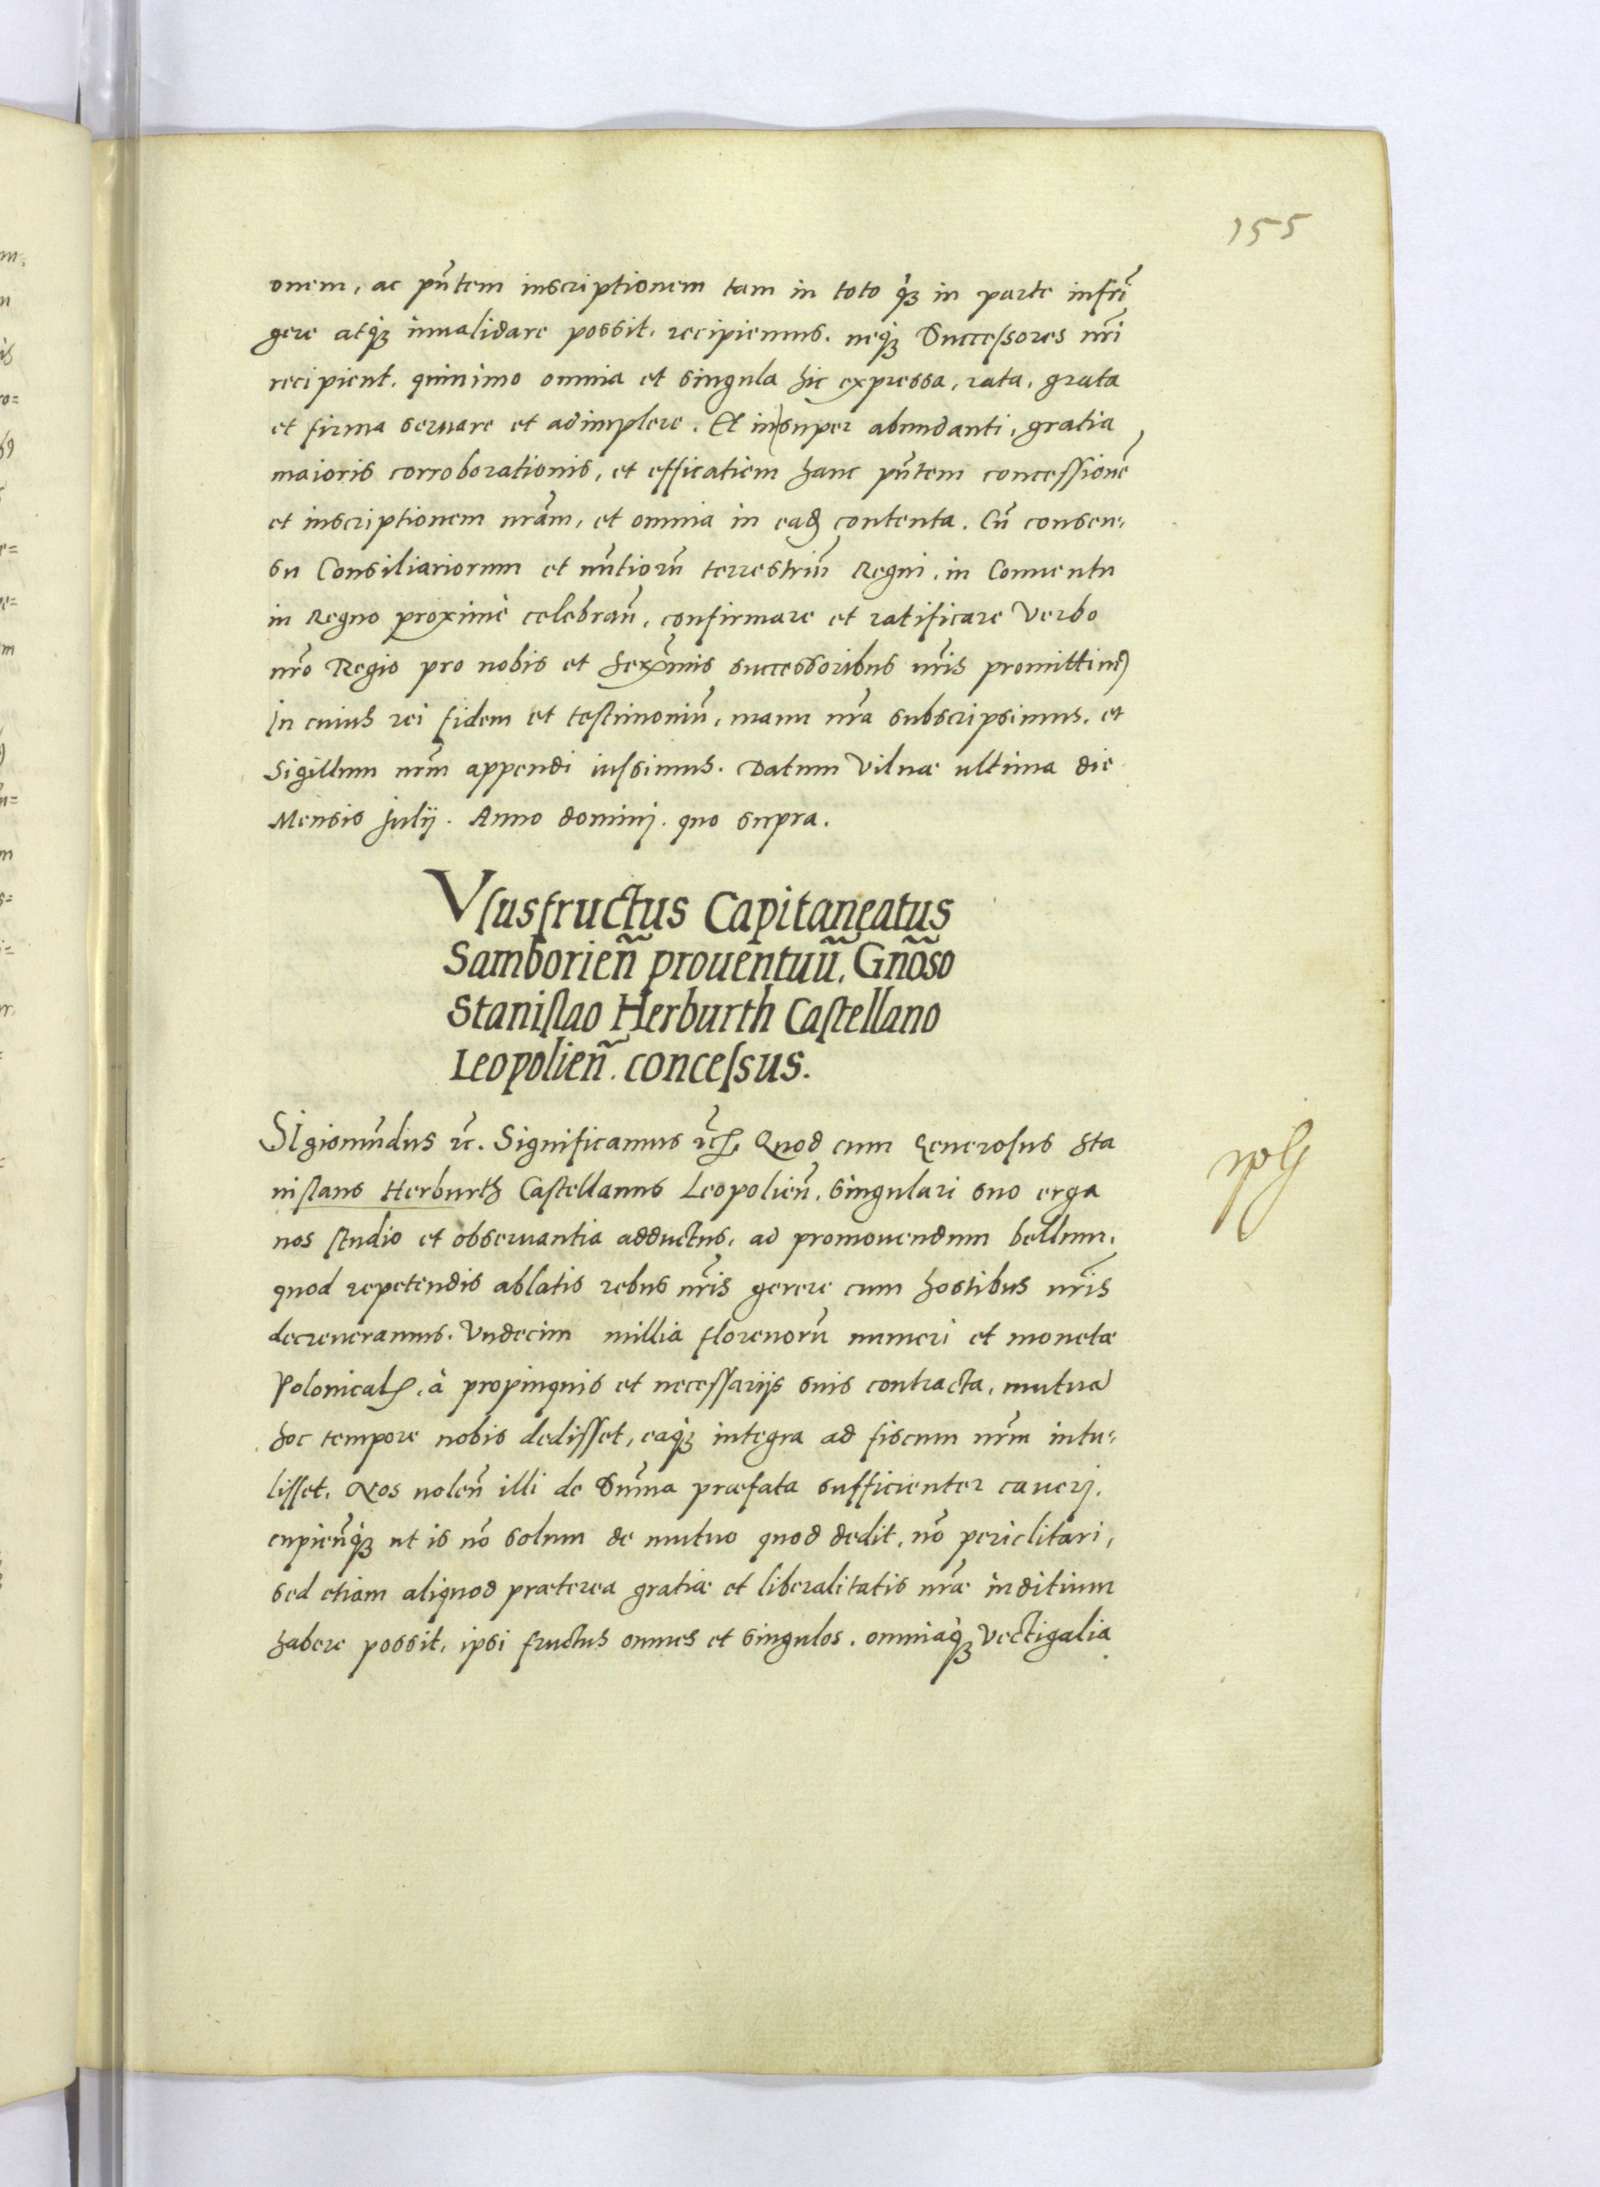 155
onem, ac pñtem inscriptionem tam in toto q̃ȝ in parte infrĩ
gere atqȝ inualidare possit, recipiemus, neqȝ Successores nr̃i
recipient, quinimo omnia et singula hic expressa, rata, grata
et firma seruare et adimplere. Et insuper abundanti, gratia
maioris corroborationis, et efficatiem hanc pñtem concessionẽ
et inscriptionem nrãm, et omnia in eadȝ contenta. Cũ consen,
su Consiliariorum et nũtiorũ terrestriũ Regni, in Conuentu
in Regno proximè celebrañ, confirmare et ratificare Verbo
nrõ Regio pro nobis et Serx̃mis successoribus nr̃is promittimꝰ
In cuius rei fidem et testimoniũ, manu nrã subscripsimus, et
Sigillum nrm̃ appendi iussimus. Datum Vilnæ ultima die
Mensis Julij. Anno dominj. quo supra.
Vsusfructus Capitaneatus
Samborieñ prouentuũ, Gnõso
Stanislao Herburth Castellano
Leopolieñ. concessus.
SIgismũdus ꝛc̃. Significamus ꝛc̃. Quod cum Generosus Sta
nislaus Herburth Castellanus Leopolieñ, singulari suo erga
nos studio et obseruantia adductus, ad promouendum bellum,
quod repetendis ablatis rebus nr̃is gerere cum hostibus nr̃is
decreueramus. Vndecim millia florenorũ numeri et monetæ
Polonicalꝭ, à propinquis et necessarijs suis contracta, mutua
hoc tempore nobis dedisset, eaqȝ integra ad fiscum nrm̃ intu,
lisset. Nos uoleñ illi de Sum̃a præfata sufficienter cauerj.
cupieñqȝ ut is nõ solum de mutuo quod dedit, nõ periclitari,
sed etiam aliquod præterea gratiæ et liberalitatis nræ̃ inditium
habere possit, ipsi fructus omnes et singulos, omniaqȝ Vectigalia